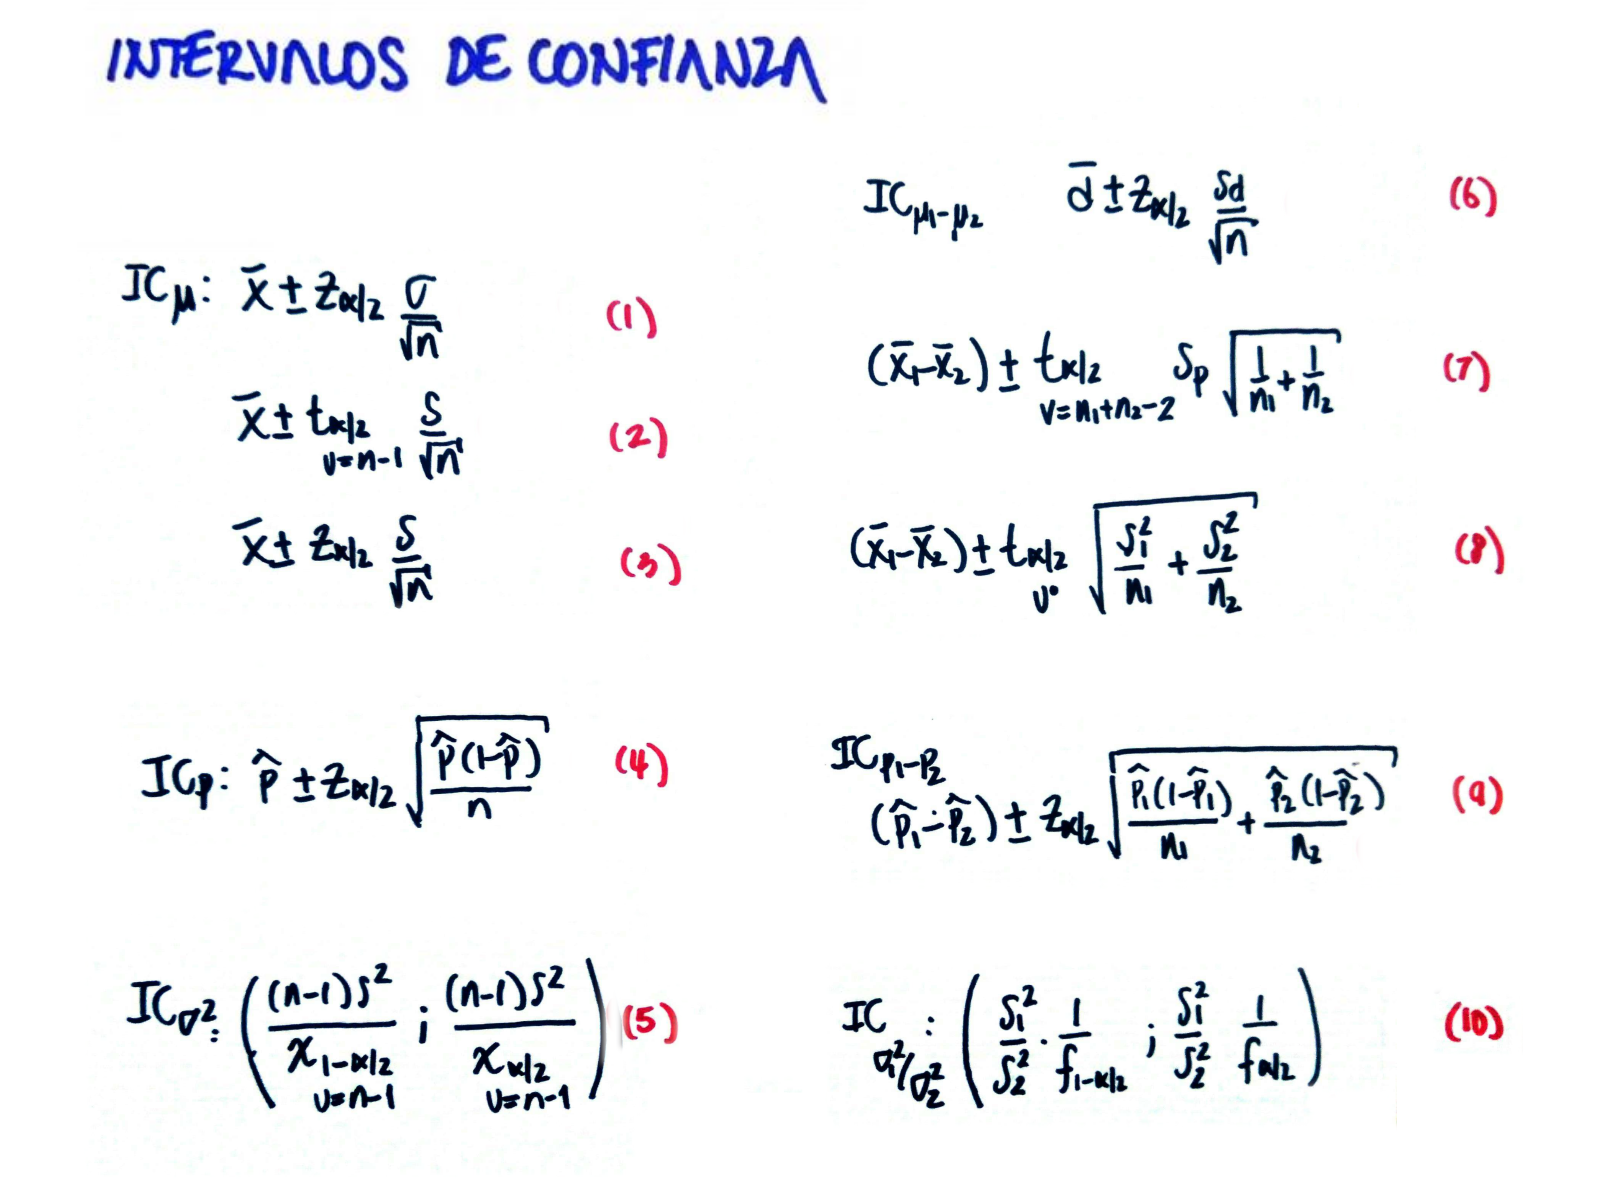 INTERVALOS DE CONFIANZA
ICμ: x̄ ± zα/2 σ/√n (1)
x̄ ± tα/2 v=n-1 s/√n (2)
x̄ ± zα/2 s/√n (3)
ICp: p̂ ± zα/2 √(p̂(1-p̂)/n) (4)
ICσ²: ((n-1)s²/χ1-α/2 v=n-1 ; (n-1)s²/χα/2 v=n-1) (5)
ICμ1-μ2 d̄ ± zα/2 sd/√n (6)
(x̄1-x̄2) ± tα/2 v=n1+n2-2 Sp √(1/n1 + 1/n2) (7)
(x̄1-x̄2) ± tα/2 v° √(s1²/n1 + s2²/n2) (8)
ICp1-p2
(p̂1-p̂2) ± zα/2 √(p̂1(1-p̂1)/n1 + p̂2(1-p̂2)/n2) (9)
IC σ1²/σ2² : (s1²/s2² · 1/f1-α/2 ; s1²/s2² 1/fα/2) (10)